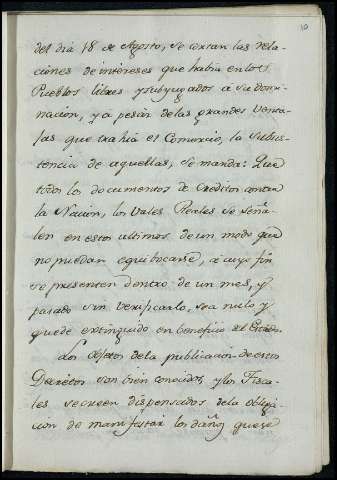 10
del dia 18 de Agosto, se cortan las rela-
ciones de intereses que habia en los
Pueblos libres y subyugados a su domi-
nacion, y a pesar de las grandes venta-
jas que trahia el Comercio, la subsis-
tencia de aquellas, se manda: Que
todos los documentos de creditos contra
la Nacion, los Vales Reales se seña-
len en estos ultimos de un modo que
no puedan equibocarse, á cuyo fin
se presenten dentro de un mes, y
pasado sin verificarlo, sea nulo y
quede extinguido en beneficio del Estado.
Los objetos de la publicacion de estos
Decretos son bien conocidos, y los Fisca-
les se creen dispensados de la obliga-
cion de manifestar los daños que se